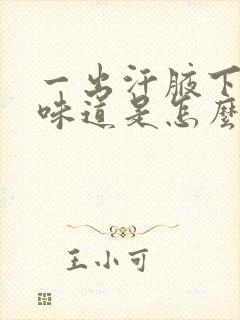 一出汗腋下
味道是怎麼
王小可